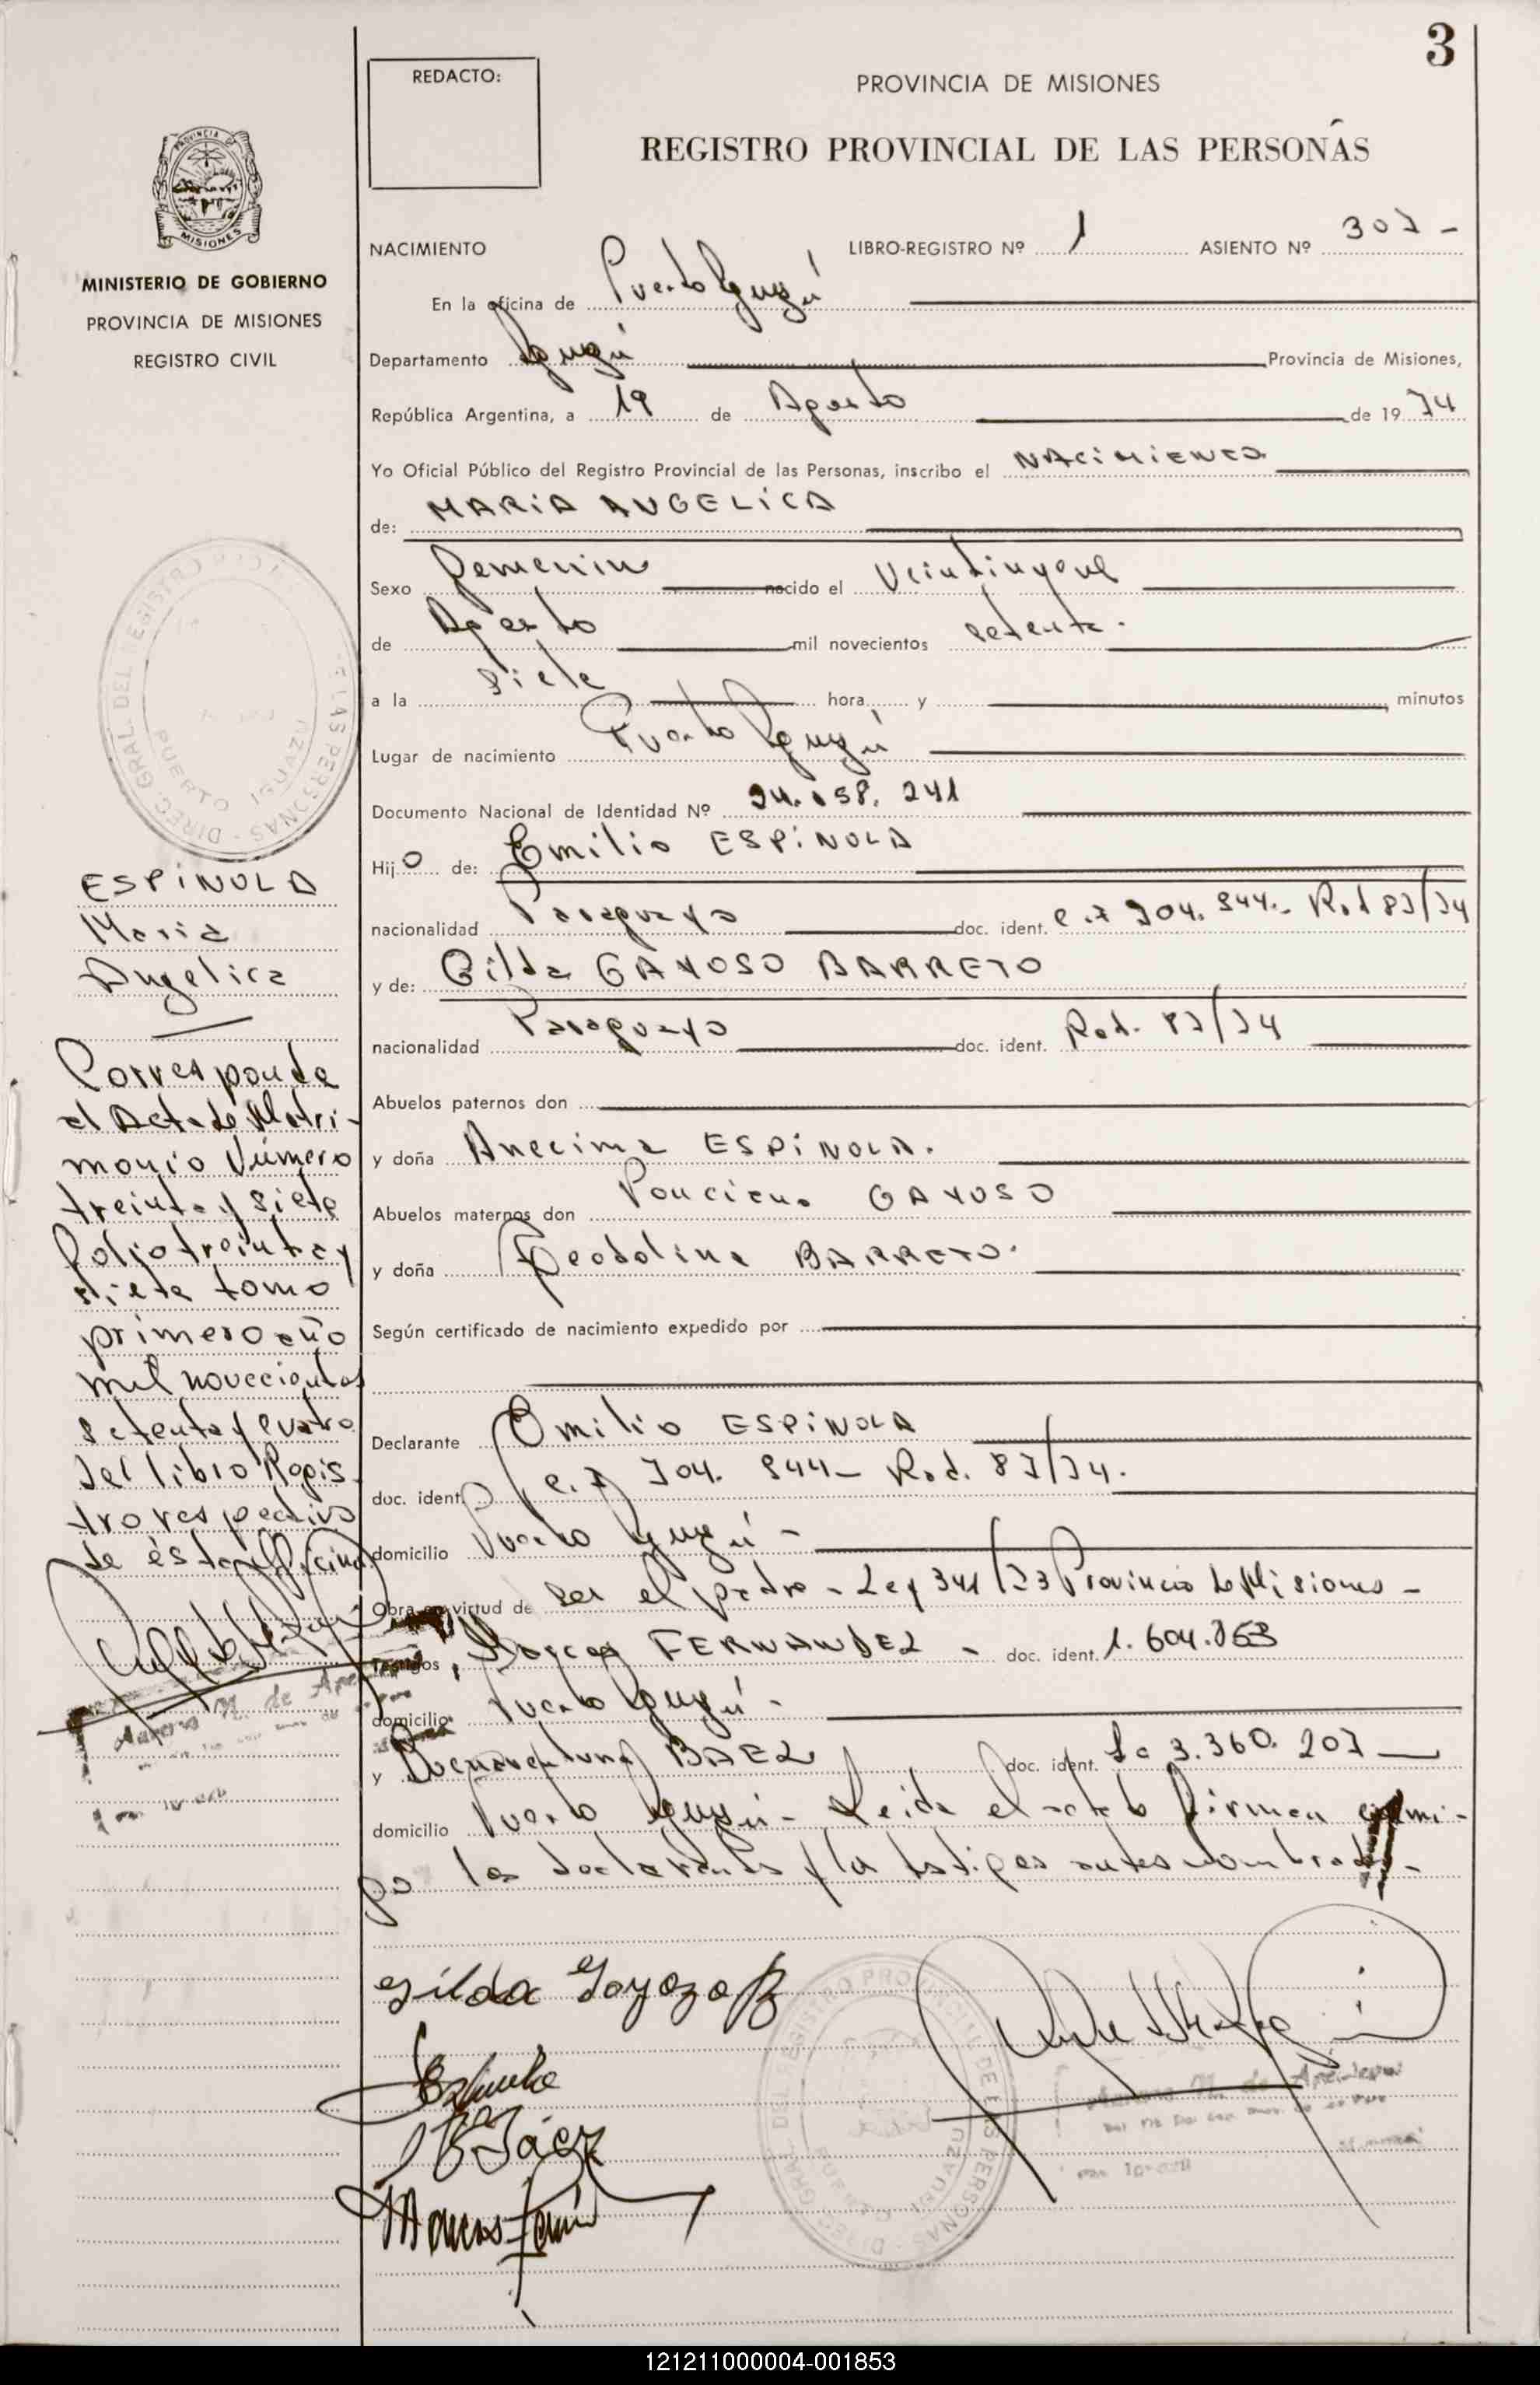 3
REDACTO:
PROVINCIA DE MISIONES
REGISTRO PROVINCIAL DE LAS PERSONAS
PROVINCIA DE
MISIONES
MINISTERIO DE GOBIERNO
PROVINCIA DE MISIONES
REGISTRO CIVIL
NACIMIENTO LIBRO-REGISTRO Nº 1 ASIENTO Nº 307-
En la oficina de Puerto Iguazú
Departamento Iguazú Provincia de Misiones,
República Argentina, a 19 de Agosto de 1974
Yo Oficial Público del Registro Provincial de las Personas, inscribo el NACIMIENTO
de: MARIA ANGELICA
Sexo Femenino nacido el Veintinueve
de Agosto mil novecientos setenta.
a la siete hora y minutos
Lugar de nacimiento Puerto Iguazú
Documento Nacional de Identidad Nº 24.058.241
Hijo de: Emilio ESPINOLA
nacionalidad Paraguayo doc. ident. C.I 704.944.- Rad 87/74
y de: Gilda GAYOSO BARRETO
nacionalidad Paraguaya doc. ident. Rad. 87/74
Abuelos paternos don
y doña Anecima ESPINOLA.
Abuelos maternos don Ponciano GAYOSO
y doña Teodolina BARRETO.
Según certificado de nacimiento expedido por
Declarante Emilio ESPINOLA
doc. ident. C.I 704.944- Rad. 87/74.
domicilio Puerto Iguazú -
Obra en virtud de ser el padre - Ley 341/73 Provincia de Misiones -
Testigos Marcos FERNANDEZ - doc. ident. 1.604.063
domicilio Puerto Iguazú -
y Buenaventura BAEZ doc. ident. 3.360.207
domicilio Puerto Iguazú - Leida el acta la firman conmi-
go los declarantes y los testigos antes nombrados-
ESPINOLA
Maria
Angelica
Corresponde
al Acta de Matri-
monio Número
treinta y siete
Folio treinta y
siete tomo
primero año
mil novecientos
setenta y cuatro
del libro Regis-
tro respectivo
de ésta Oficina
DIREC. GRAL. DEL REGISTRO DE LAS PERSONAS
PUERTO IGUAZU
Gilda Gayozo B
Espinola
B Báez
Marcos
DIREC. GRAL. DEL REGISTRO PROVINCIAL DE LAS PERSONAS
PUERTO IGUAZU
121211000004-001853